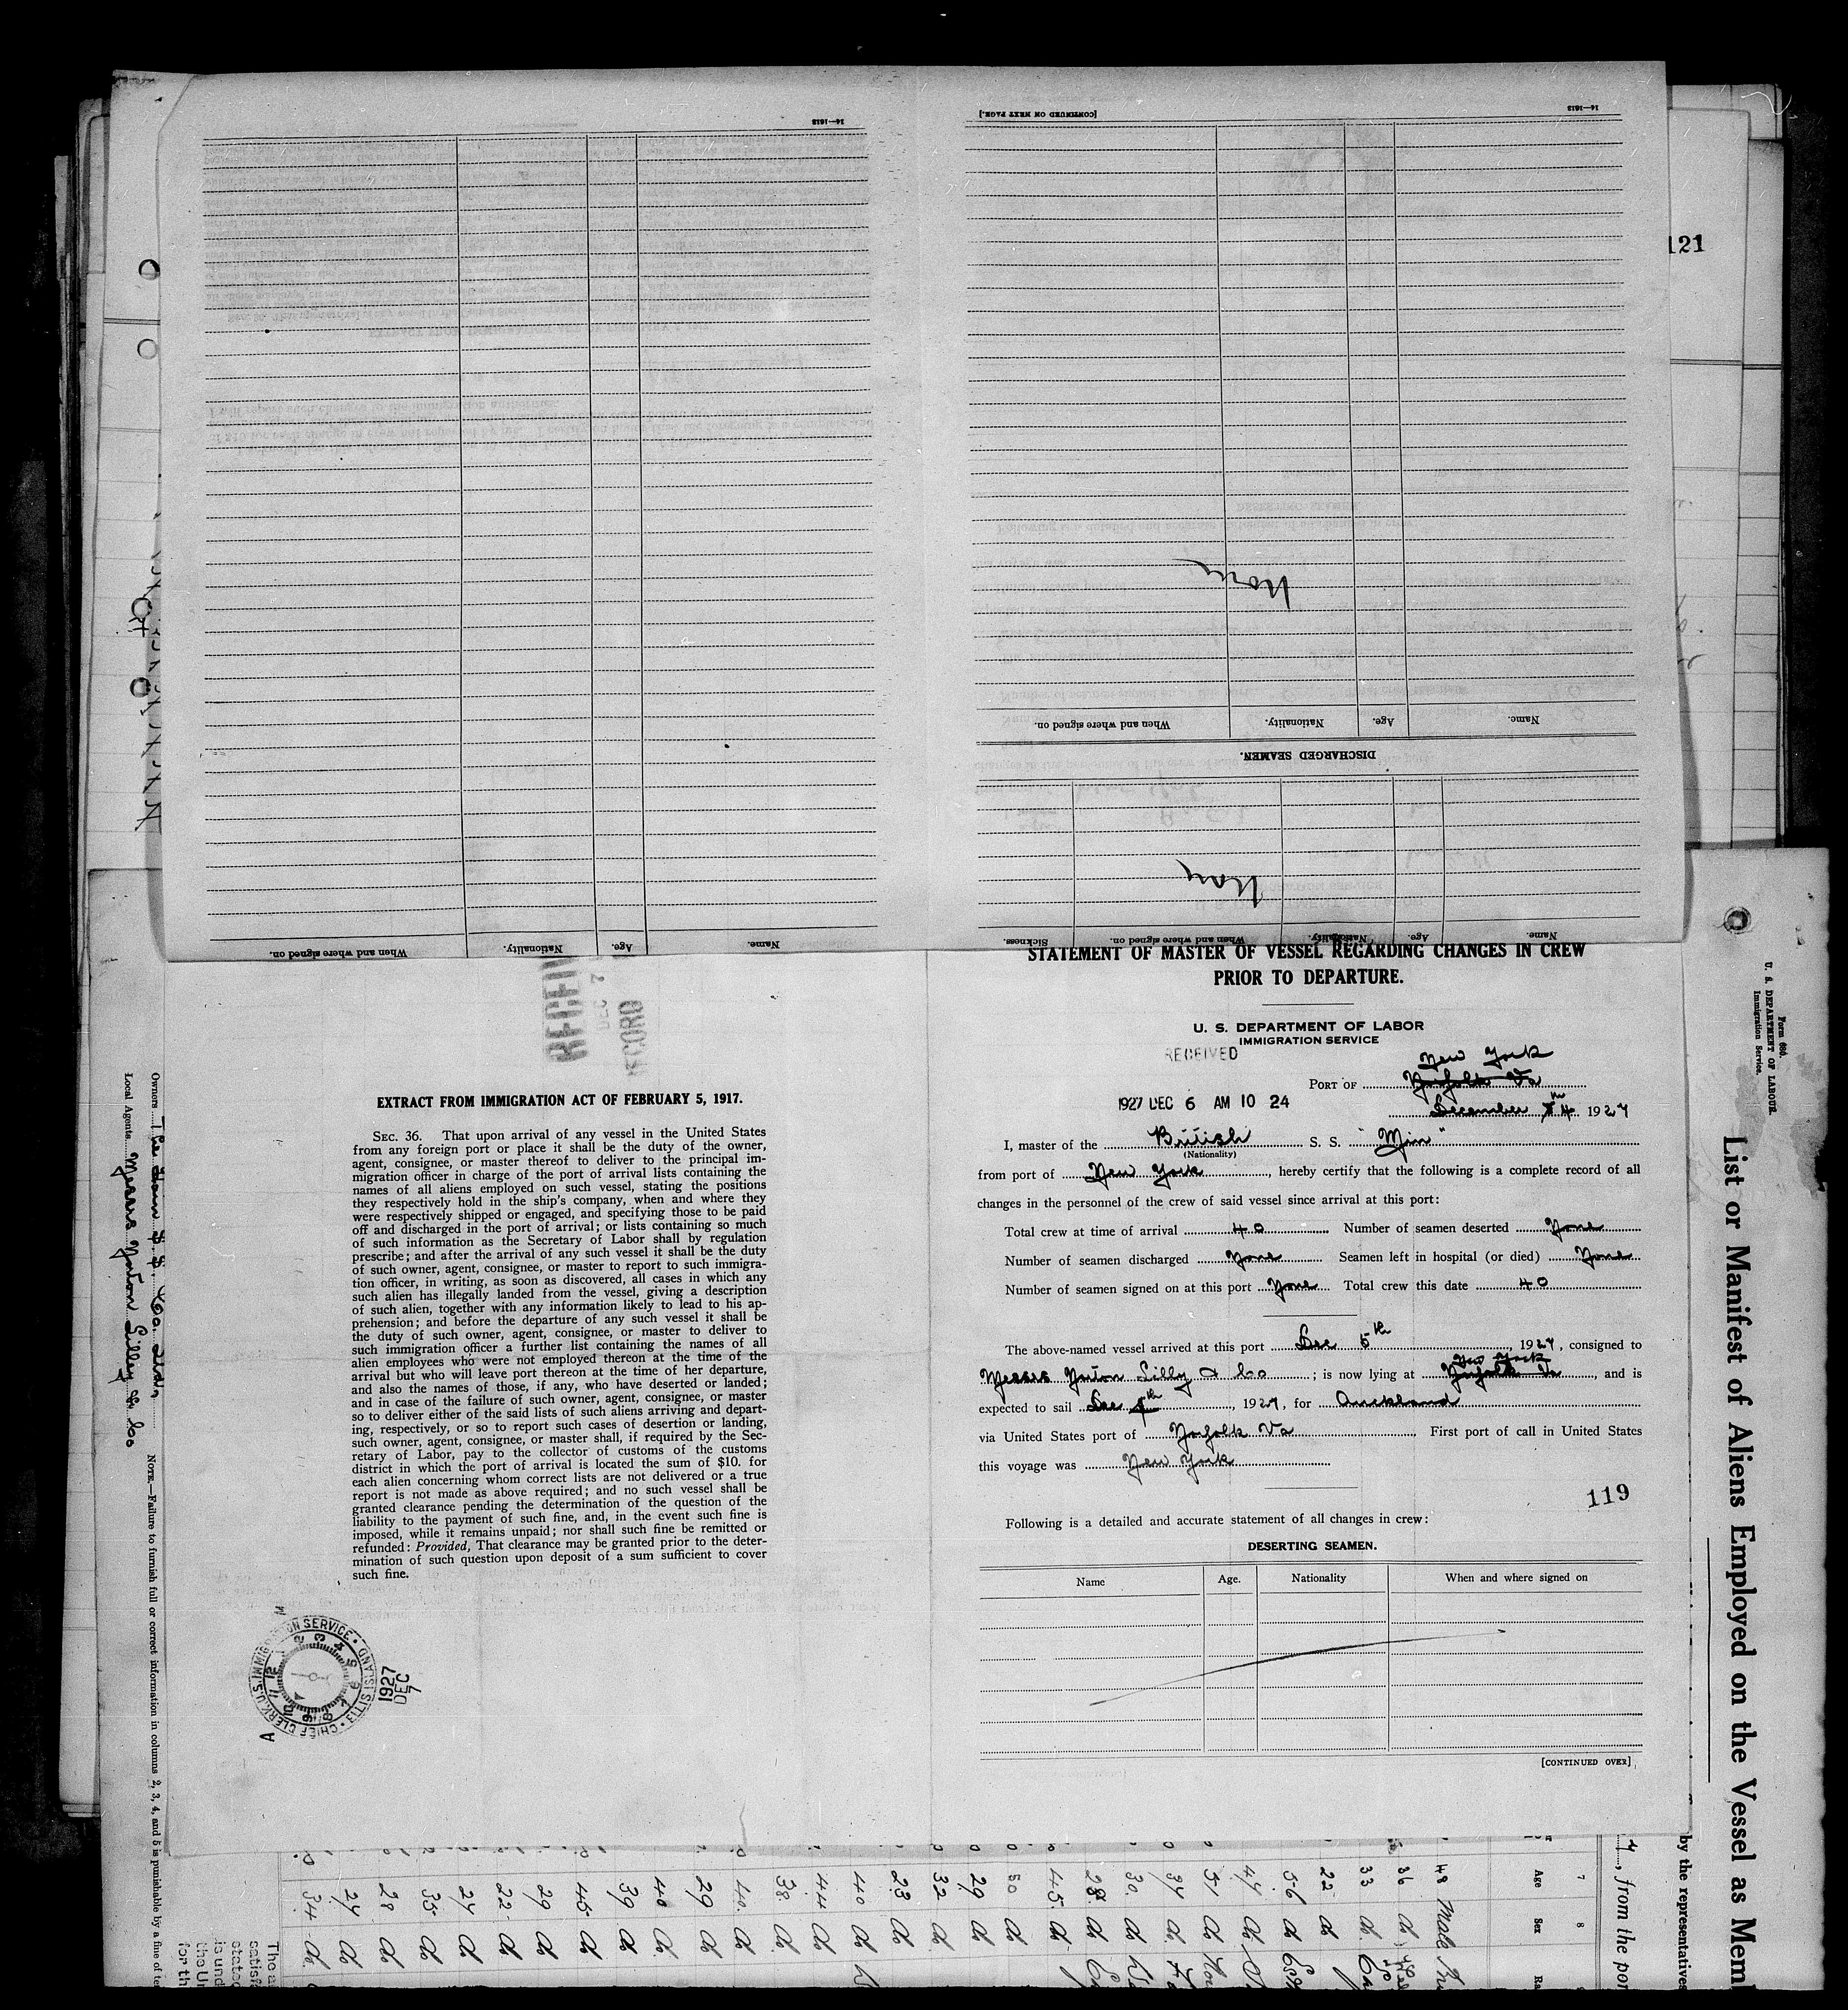 14—1613
[CONTINUED ON NEXT PAGE.]
14—1613
121
None
When and where signed on.
Nationality.
Age.
Name.
DISCHARGED SEAMEN.
None
Sickness.
When and where signed on.
Nationality.
Age.
Name.
When and where signed on.
Nationality.
Age.
Name.
STATEMENT OF MASTER OF VESSEL REGARDING CHANGES IN CREW
PRIOR TO DEPARTURE.
U. S. DEPARTMENT OF LABOR
IMMIGRATION SERVICE
RECEIVED
New York
PORT OF Norfolk Va
1927 DEC 6 AM 10 24
December 4th 1927
I, master of the British S. S. "Min"
(Nationality)
from port of New York, hereby certify that the following is a complete record of all
changes in the personnel of the crew of said vessel since arrival at this port:
Total crew at time of arrival 40 Number of seamen deserted None
Number of seamen discharged None Seamen left in hospital (or died) None
Number of seamen signed on at this port None Total crew this date 40
The above-named vessel arrived at this port Dec 5th 1927, consigned to
New York
Messrs Norton Lilly & Co; is now lying at Norfolk Va, and is
expected to sail Dec th, 1927, for Auckland
via United States port of Norfolk Va. First port of call in United States
this voyage was New York
119
Following is a detailed and accurate statement of all changes in crew:
DESERTING SEAMEN.
Name Age. Nationality When and where signed on
[CONTINUED OVER]
DEC 7
RECORD
EXTRACT FROM IMMIGRATION ACT OF FEBRUARY 5, 1917.
SEC. 36. That upon arrival of any vessel in the United States
from any foreign port or place it shall be the duty of the owner,
agent, consignee, or master thereof to deliver to the principal im-
migration officer in charge of the port of arrival lists containing the
names of all aliens employed on such vessel, stating the positions
they respectively hold in the ship's company, when and where they
were respectively shipped or engaged, and specifying those to be paid
off and discharged in the port of arrival; or lists containing so much
of such information as the Secretary of Labor shall by regulation
prescribe; and after the arrival of any such vessel it shall be the duty
of such owner, agent, consignee, or master to report to such immigra-
tion officer, in writing, as soon as discovered, all cases in which any
such alien has illegally landed from the vessel, giving a description
of such alien, together with any information likely to lead to his ap-
prehension; and before the departure of any such vessel it shall be
the duty of such owner, agent, consignee, or master to deliver to
such immigration officer a further list containing the names of all
alien employees who were not employed thereon at the time of the
arrival but who will leave port thereon at the time of her departure,
and also the names of those, if any, who have deserted or landed;
and in case of the failure of such owner, agent, consignee, or master
so to deliver either of the said lists of such aliens arriving and depart-
ing, respectively, or so to report such cases of desertion or landing,
such owner, agent, consignee, or master shall, if required by the Sec-
retary of Labor, pay to the collector of customs of the customs
district in which the port of arrival is located the sum of $10. for
each alien concerning whom correct lists are not delivered or a true
report is not made as above required; and no such vessel shall be
granted clearance pending the determination of the question of the
liability to the payment of such fine, and, in the event such fine is
imposed, while it remains unpaid; nor shall such fine be remitted or
refunded: Provided, That clearance may be granted prior to the deter-
mination of such question upon deposit of a sum sufficient to cover
such fine.
CHIEF CLERK, U.S. IMMIGRATION SERVICE • ELLIS ISLAND
1927
DEC
7
Form 680.
U. S. DEPARTMENT OF LABOUR
Immigration Service.
List or Manifest of Aliens Employed on the Vessel as Mem
by the representatives
, from the por
Owners
Local Agents Messrs Norton Lilly & Co
NOTE.—Failure to furnish full or correct information in columns 2, 3, 4, and 5 is punishable by a fine of te
7 8
Age Sex Ra
48 Male
36 do
33 do
22 do
56 do
47 do
51 do
34 do
30 do
28 do
45 do
50 do
29 do
32 do
23 do
40 do
44 do
38 do
40 do
29 do
40 do
39 do
45 do
29 do
22 do
24 do
35 do
28 do
24 do
34 do